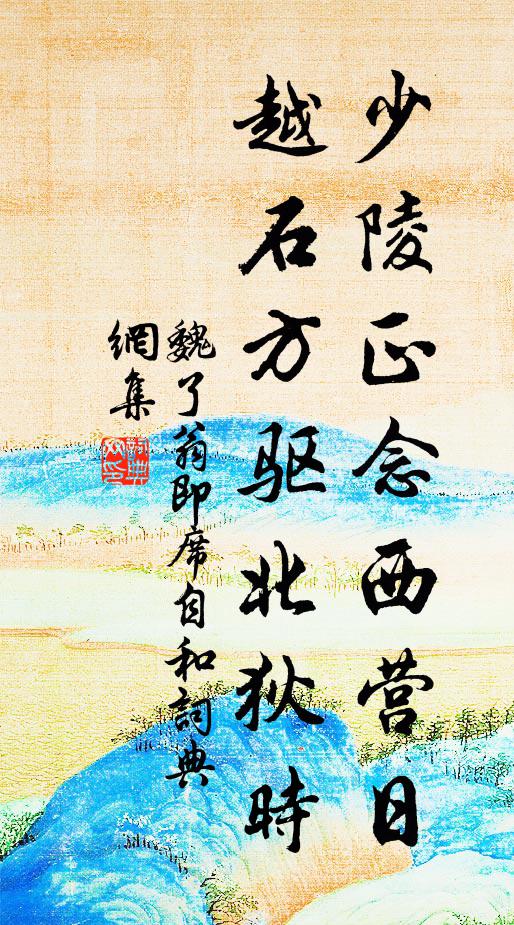 少陵正念西营日
越石方驱北狄時
魏了翁即席自和詞典
網集